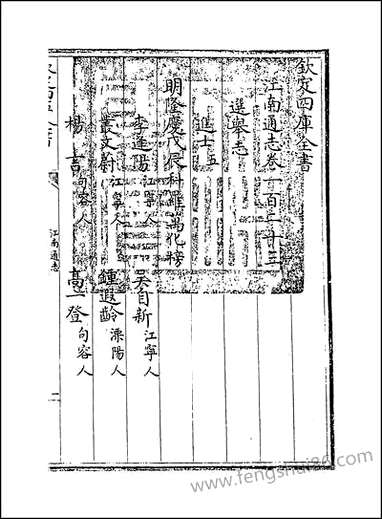 欽定四庫全書
江南通志卷一百二十三
選舉志
進士五
明隆慶戊辰科羅萬化榜
李逢陽江寧人 吳自新江寧人
叢文蔚江寧人 鍾遐齡溧陽人
楊 句容人 高一登句容人
江南通志
一
www.fengshui86.com